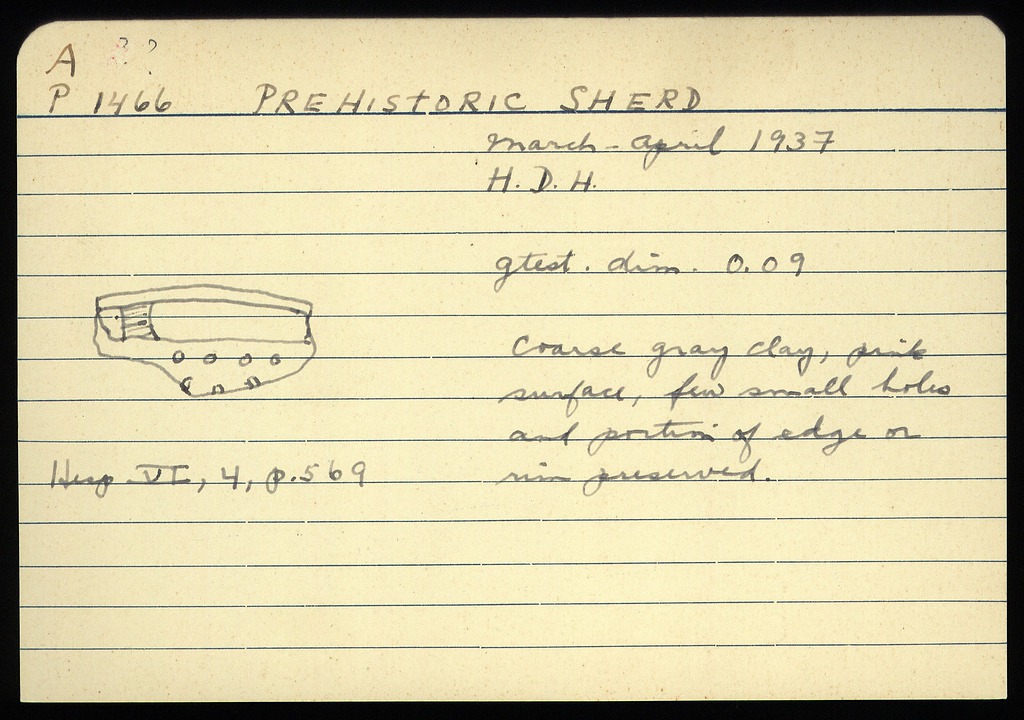 A ? ?
P 1466 PREHISTORIC SHERD
March - April 1937
H. D. H.
gtest. dim. 0.09
Coarse gray clay, pink
surface, few small holes
and portion of edge or
rim preserved.
Hesp VI, 4, p. 569